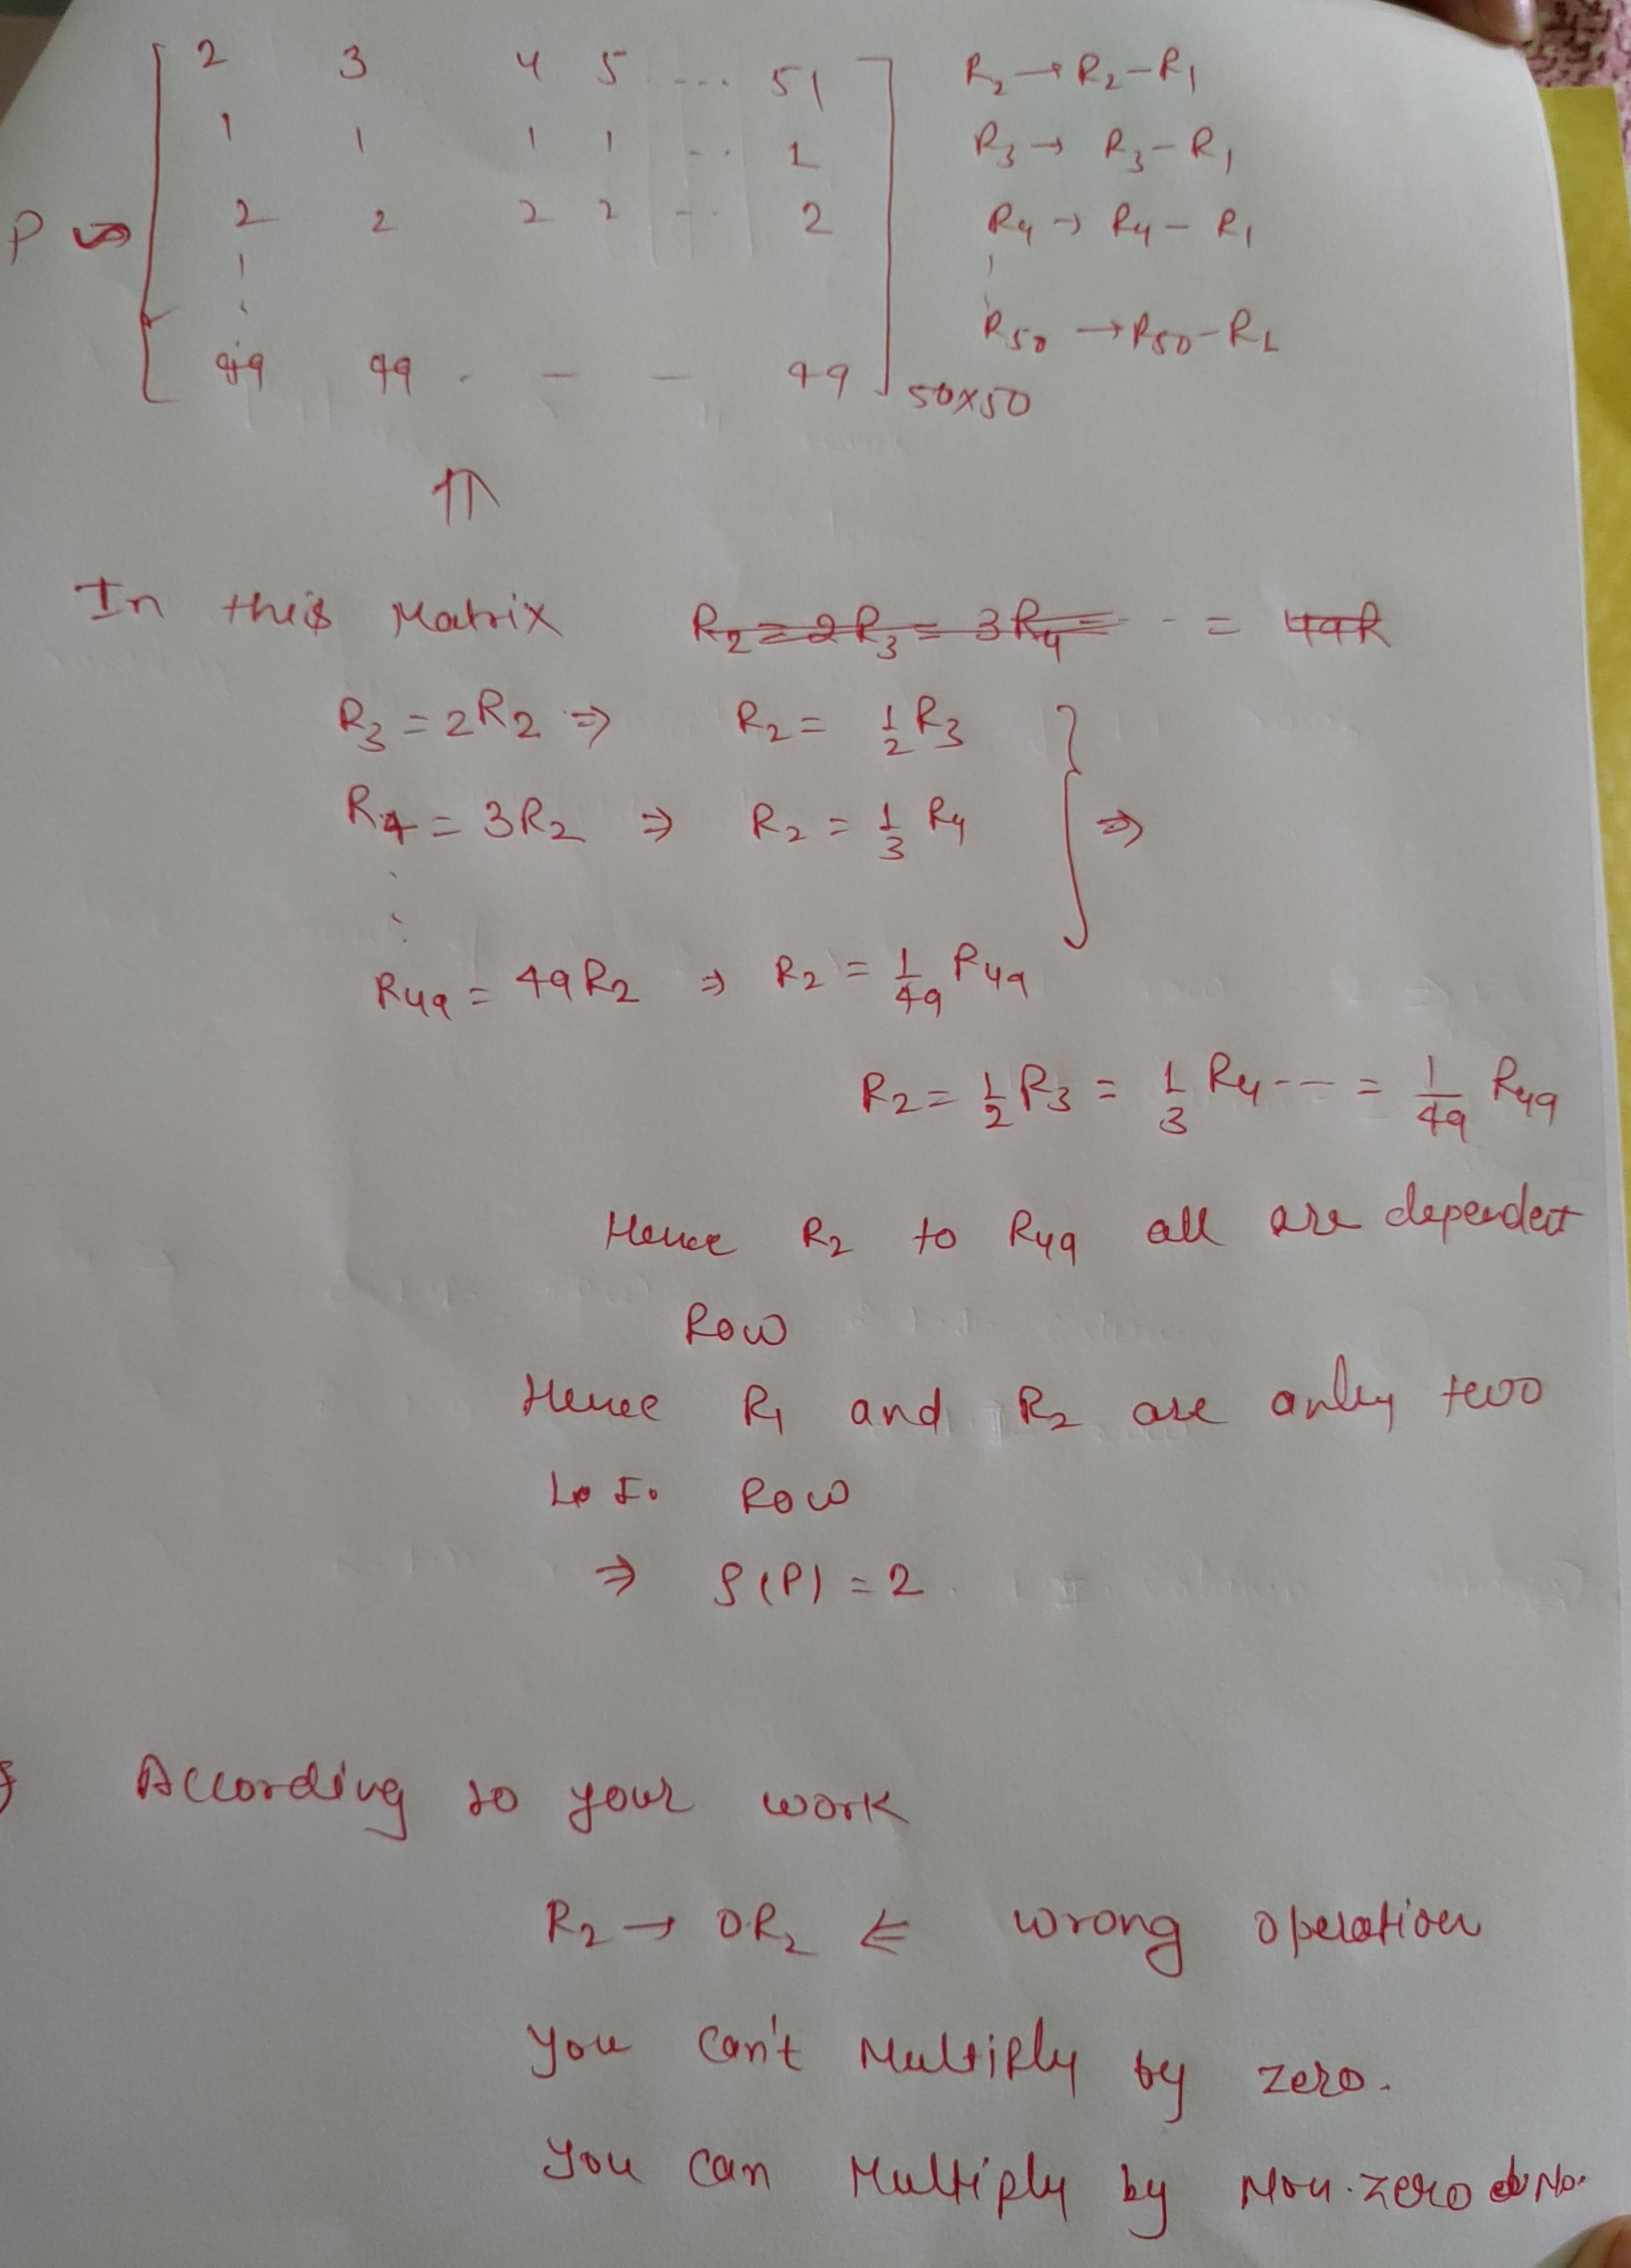 2 3 4 5 ... 51 R₂ → R₂ - R₁
1 1 1 1 ... 1 R₃ → R₃ - R₁
P ~ 2 2 2 2 ... 2 R₄ → R₄ - R₁
R₅₀ → R₅₀ - R₁
49 49 . - - 49 50×50
⇑
In this Matrix R₂ = 2R₃ = 3R₄ = - - = 49R
R₃ = 2R₂ ⇒ R₂ = 1/2 R₃
R₄ = 3R₂ ⇒ R₂ = 1/3 R₄ ⇒
R₄₉ = 49R₂ ⇒ R₂ = 1/49 R₄₉
R₂ = 1/2 R₃ = 1/3 R₄ --- = 1/49 R₄₉
Hence R₂ to R₄₉ all are dependent
Row
Hence R₁ and R₂ are only two
L. I. Row
⇒ ρ(P) = 2
According to your work
R₂ → 0R₂ ⇐ wrong operation
you can't Multiply by zero.
you can Multiply by Non-zero No.